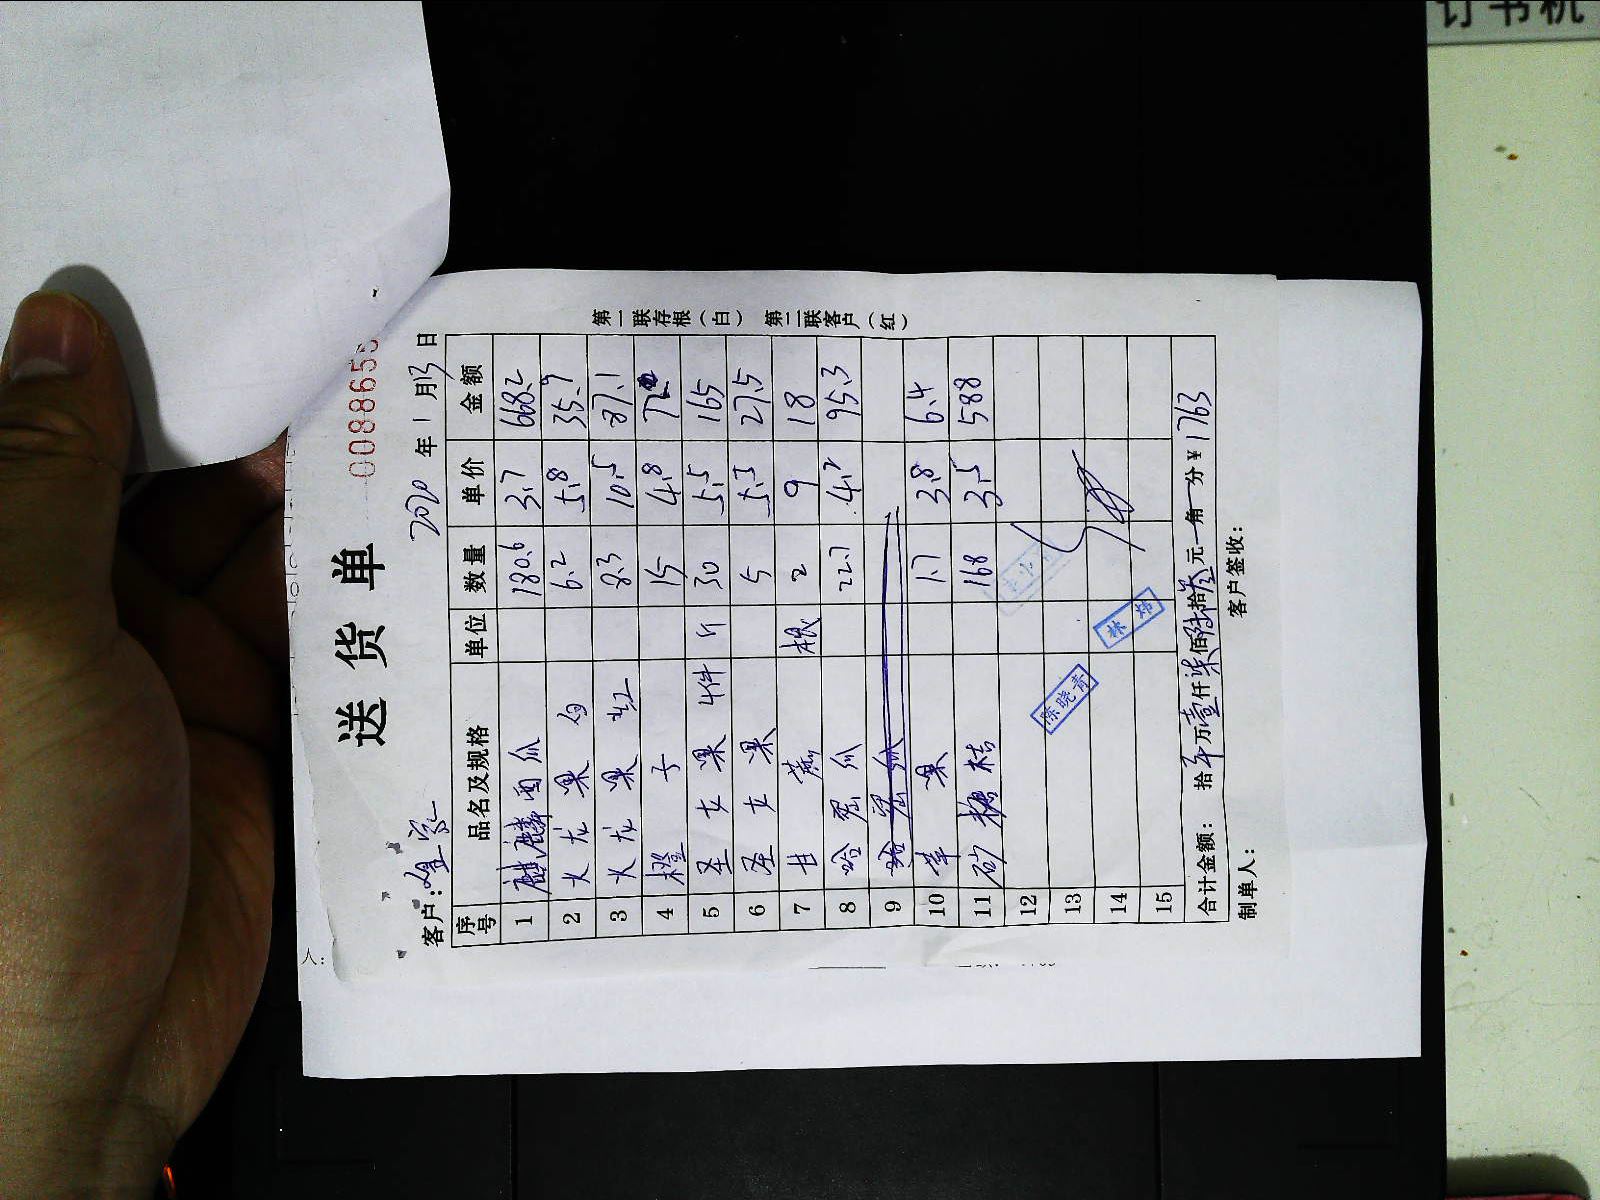 订书机
送货单
0088655
2020年1月13日
客户:
序号 品名及规格 单位 数量 单价 金额
1 麒麟西瓜 180.6 3.7 668.2
2 火龙果 白 6.2 5.8 35.9
3 火龙果 红 8.3 10.5 87.1
4 橙子 15 4.8 72
5 圣女果 4件 斤 30 5.5 165
6 圣女果 5 5.5 27.5
7 甘蔗 根 2 9 18
8 哈密瓜 22.7 4.2 95.3
9 哈密瓜
10 苹果 1.7 3.8 6.4
11 砂糖桔 168 3.5 588
12
13
14
15
陈晓青
林炜
合计金额: 拾 万壹仟柒佰陆拾叁元 角 分 ¥1763
制单人: 客户签收:
第一联存根(白) 第二联客户(红)
人: